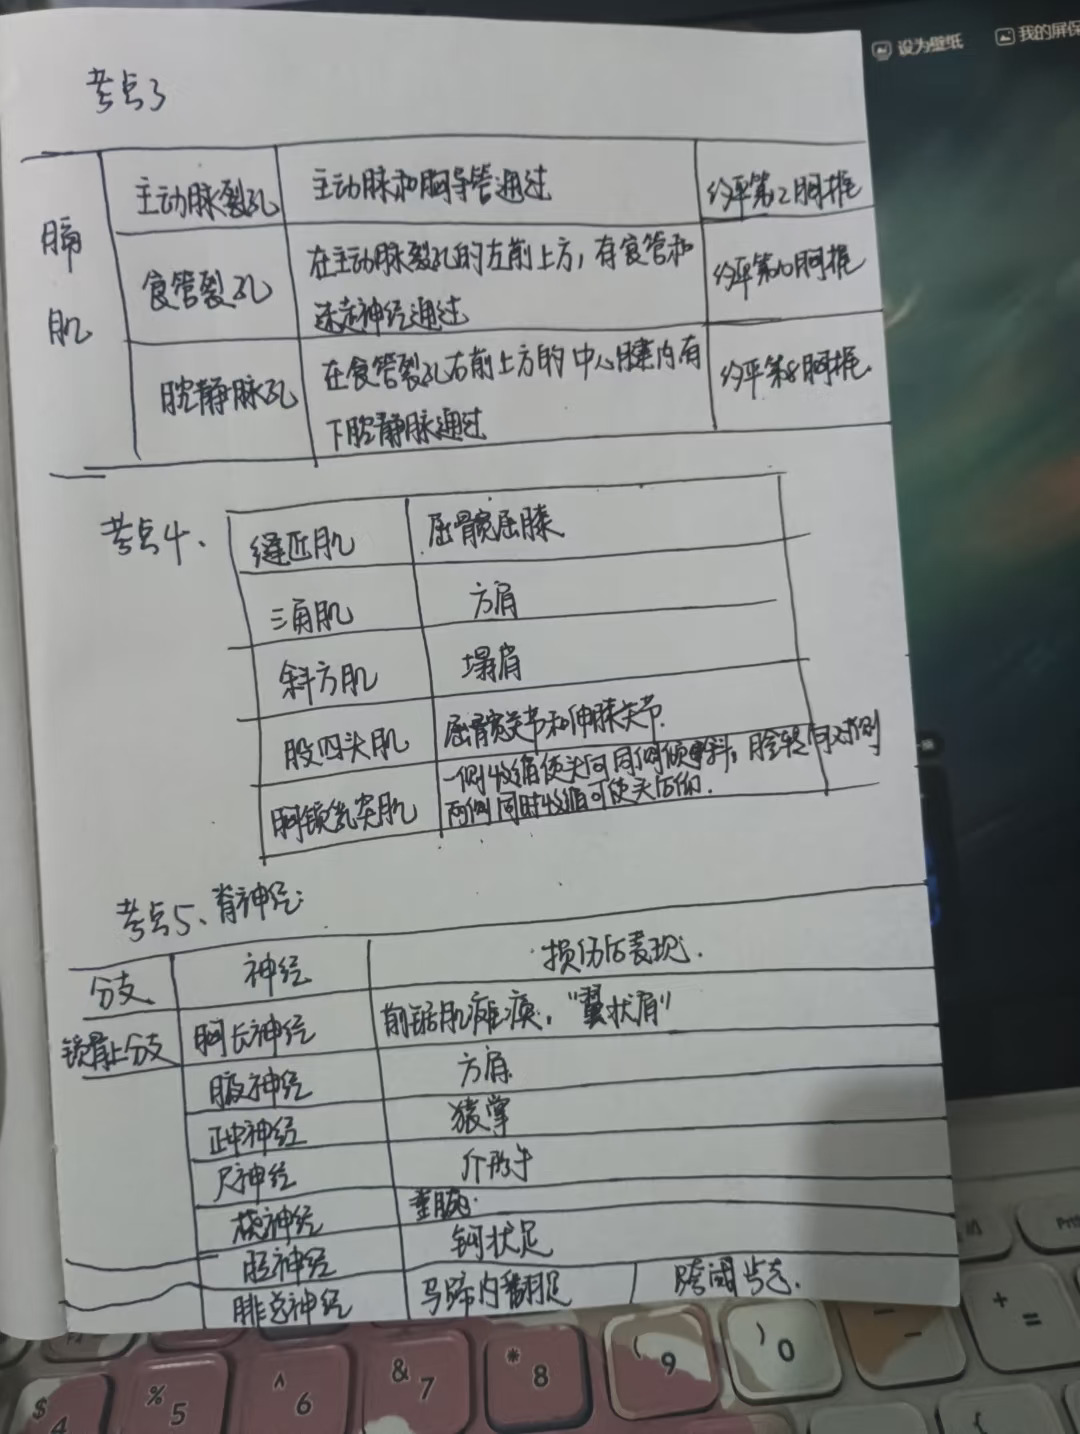 设为壁纸
我的屏保
考点3
膈肌
主动脉裂孔
主动脉和胸导管通过
约平第12胸椎
食管裂孔
在主动脉裂孔的左前上方，有食管和
迷走神经通过
约平第10胸椎
腔静脉孔
在食管裂孔右前上方的中心腱内有
下腔静脉通过
约平第8胸椎
考点4、
缝匠肌
屈髋屈膝
三角肌
方肩
斜方肌
塌肩
股四头肌
屈髋关节和伸膝关节.
胸锁乳突肌
一侧收缩使头向同侧倾斜，脸转向对侧
两侧同时收缩可使头后仰.
考点5、脊神经
分支
神经
损伤后表现.
锁骨上分支
胸长神经
前锯肌瘫痪，"翼状肩"
腋神经
方肩
正中神经
猿掌
尺神经
爪形手
桡神经
垂腕
胫神经
钩状足
腓总神经
马蹄内翻足
跨阈步态.
$ 4
% 5
^ 6
& 7
* 8
( 9
) 0
+ =
{